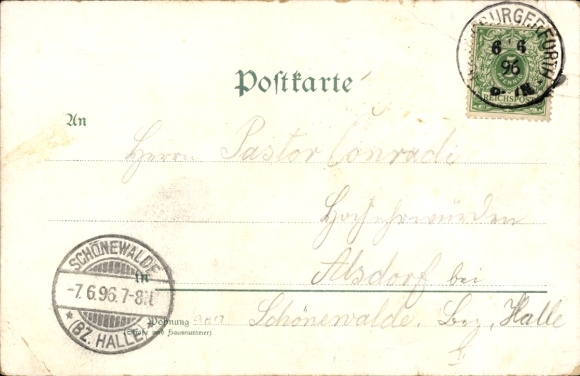 BURGERFURTH
6 6
96
REICHSPOST
Postkarte
An
Herrn Pastor Conradi
Hochehrwürden
Alsdorf bei
in
Schönewalde. Bez. Halle
Wohnung
(Straße und Hausnummer)
SCHÖNEWALDE
-7.6.96.7-8
* (BZ. HALLE)